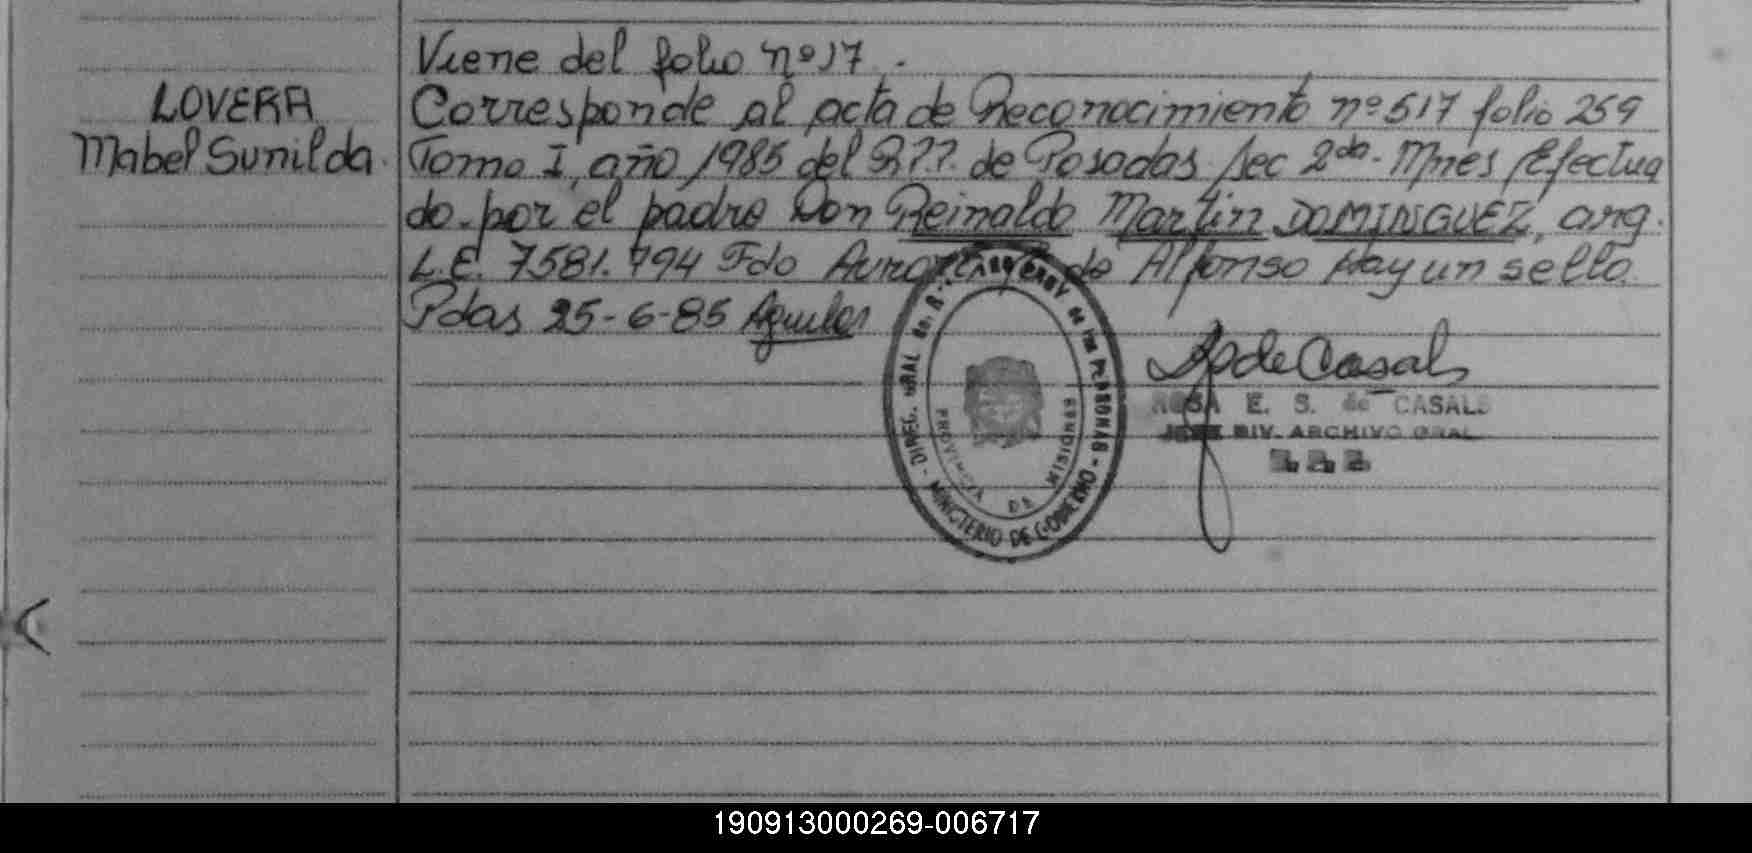 Viene del folio nº 17.
LOVERA
Mabel Sunilda.
Corresponde al acta de Reconocimiento nº 517 folio 259
Tomo I, año 1985 del R.P.P. de Posadas Sec 2da. Mnes Efectua
do por el padre Don Reinaldo Martin DOMINGUEZ, arg.
L.E. 7581.794 Fdo Aurora de Alfonso Hay un sello.
Pdas 25-6-85
DIREC. GRAL de R. de las PERSONAS - MINISTERIO DE GOBIERNO -
PROVINCIA DE MISIONES
de Casals
ROSA E. S. de CASALS
JEFE DIV. ARCHIVO GRAL
190913000269-006717